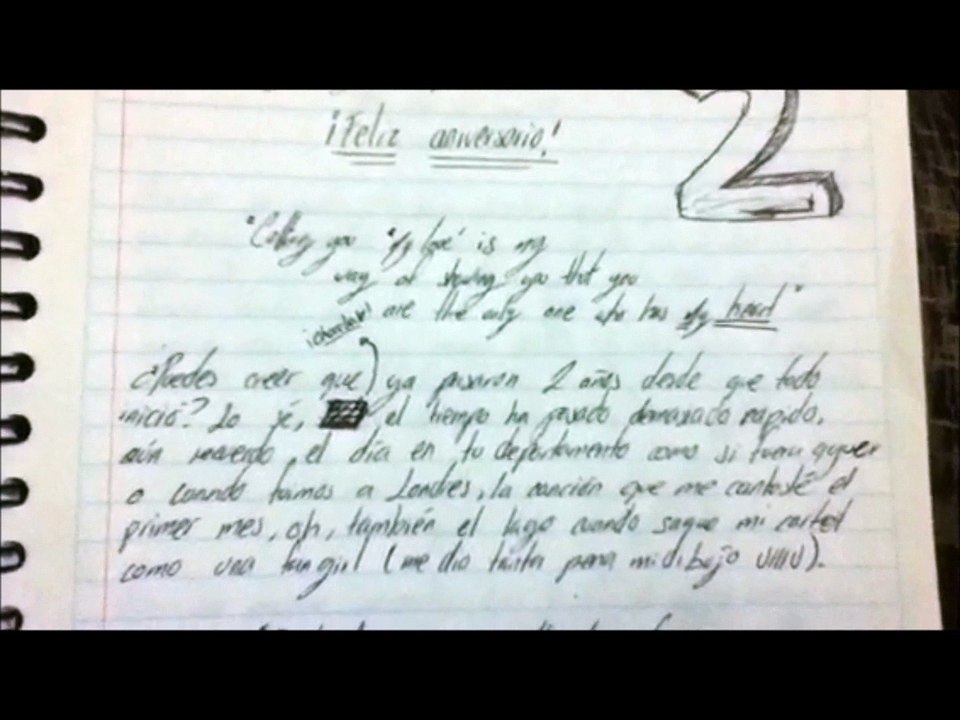 ¡Feliz aniversario!
2
"Calling you 'My love' is my
way of showing you that you
are the only one who has My heart"
¡chocolate!
¿Puedes creer que ya pasaron 2 años desde que todo
inició? Lo sé, el tiempo ha pasado demasiado rapido,
aún recuerdo el día en tu departamento como si fuera ayer
o cuando fuimos a Londres, la canción que me cantaste el
primer mes, oh, también el lago cuando saque mi cartel
como una fangirl (me dio tanta pena mi dibujo UllU).